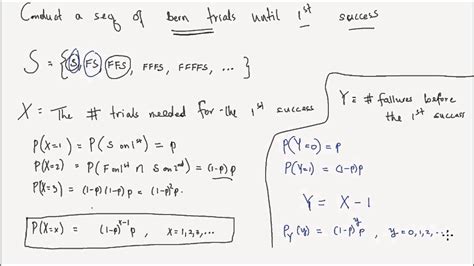 Conduct a seq of bern trials until 1st success
S = {S, FS, FFS, FFFS, FFFFS, ...}
X = The # trials needed for the 1st success
P(X=1) = P(S on 1st) = p
P(X=2) = P(F on 1st ∩ S on 2nd) = (1-p)p
P(X=3) = (1-p)(1-p)p = (1-p)²p
P(X=x) = (1-p)^(x-1) p , x=1,2,3,...
Y = # failures before
the 1st success
P(Y=0) = p
P(Y=1) = (1-p)p
Y = X - 1
P_Y(y) = (1-p)^y p , y=0,1,2,...